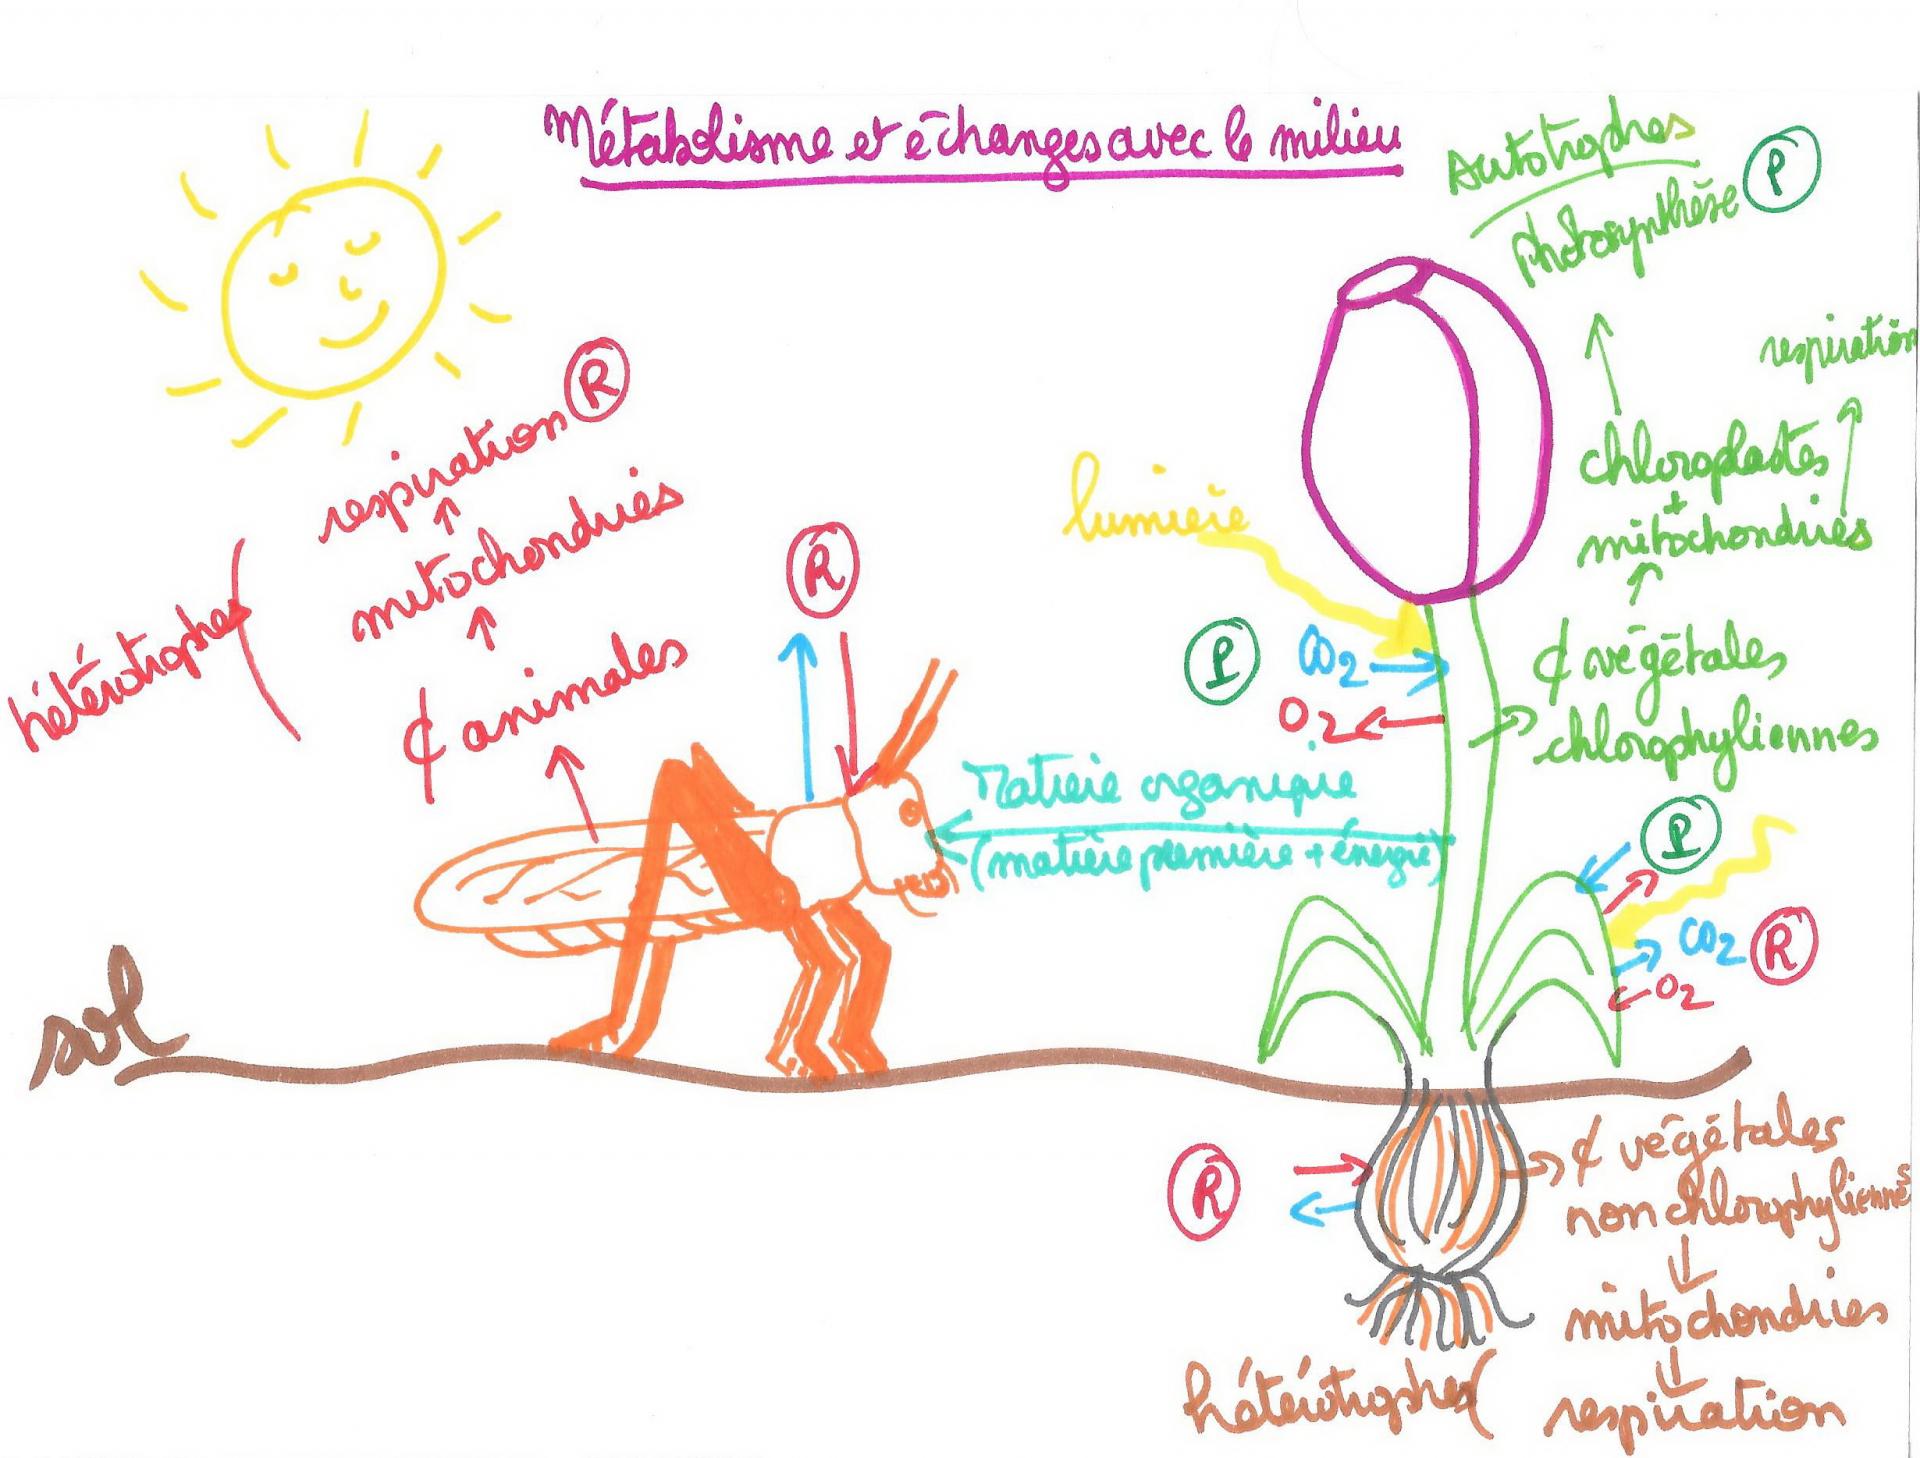 Métabolisme et échanges avec le milieu
Autotrophes
Photosynthèse P
respiration
chloroplastes
+
mitochondries
¢ végétales
chlorophyliennes
respiration R
mitochondries
¢ animales
hétérotrophes
R
lumière
P CO2
O2
Matière organique
(matière première + énergie)
P
CO2 R
O2
sol
R
¢ végétales
non chlorophyliennes
mitochondries
respiration
hétérotrophes